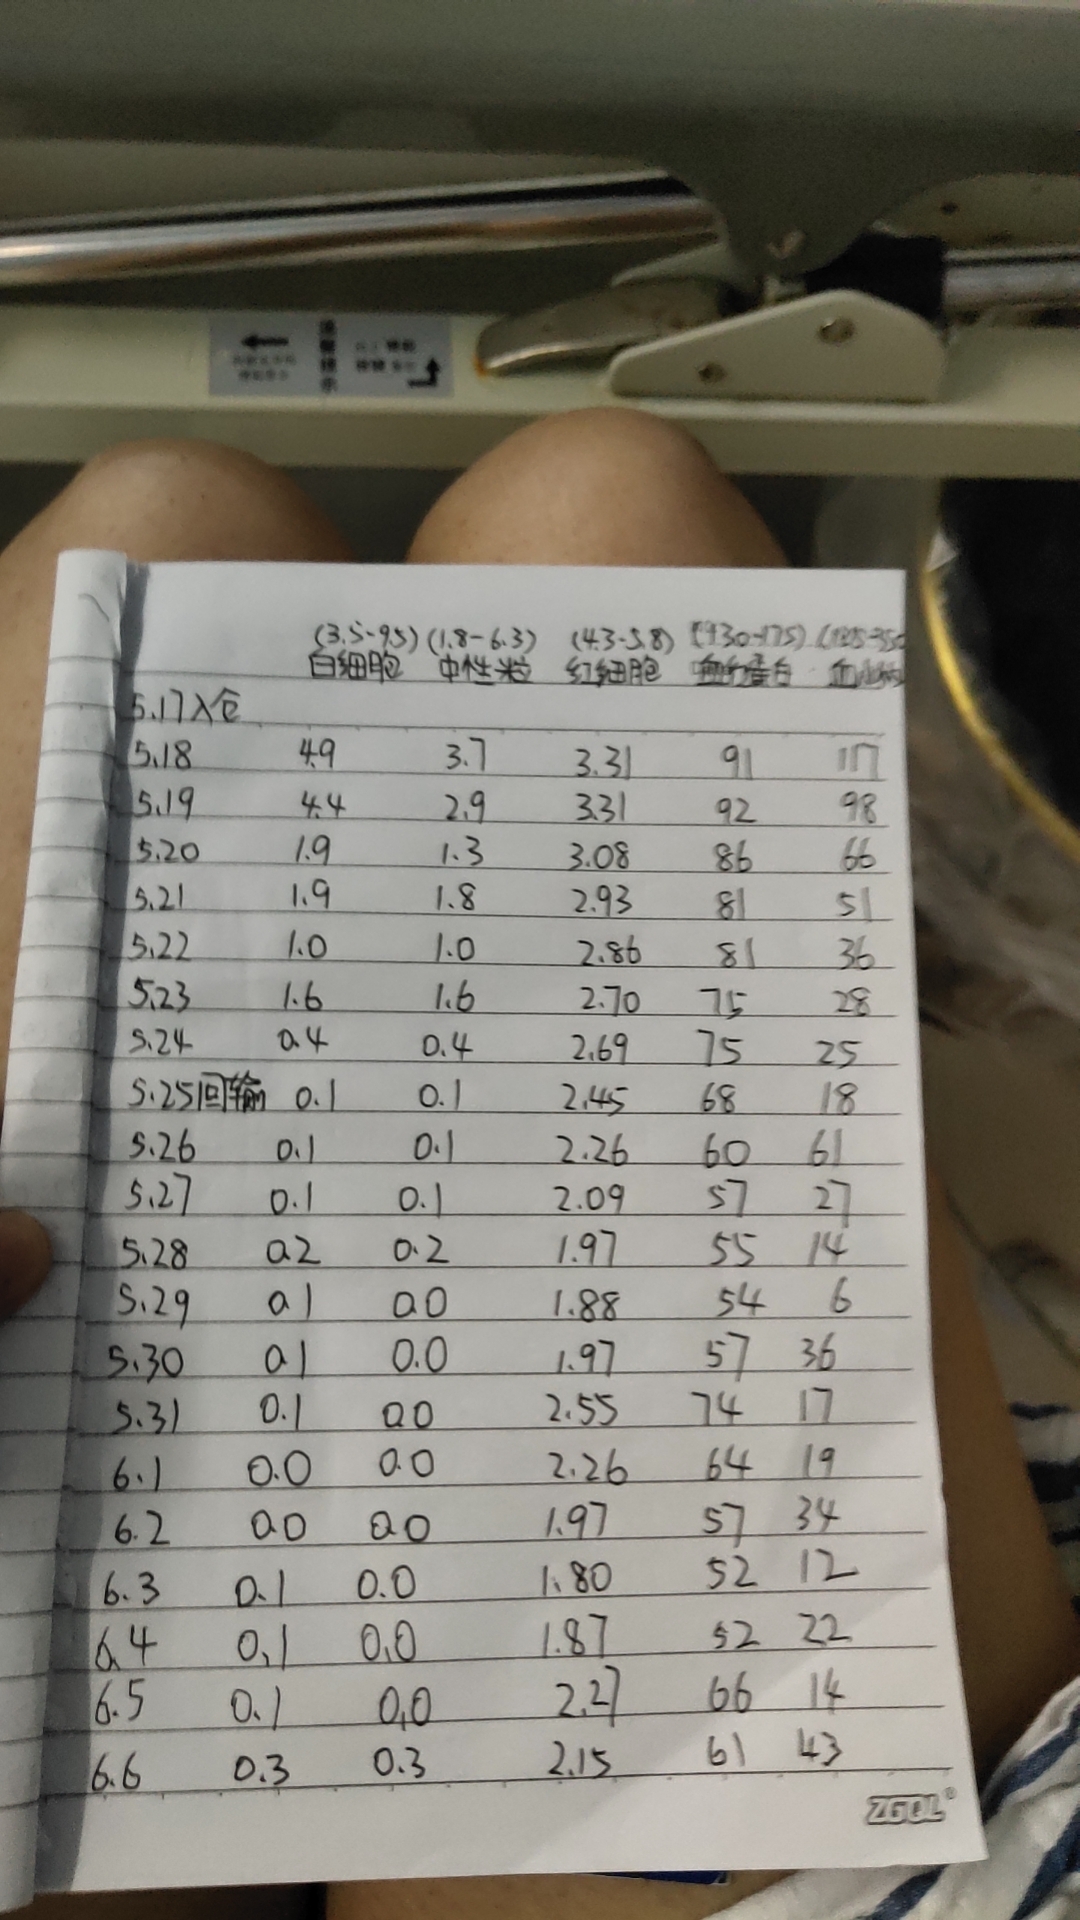 (3.5-9.5) (1.8-6.3) (4.3-5.8) (130-175) (125-350
白细胞 中性粒 红细胞 血红蛋白 血小板
5.17入仓
5.18 4.9 3.7 3.31 91 117
5.19 4.4 2.9 3.31 92 98
5.20 1.9 1.3 3.08 86 66
5.21 1.9 1.8 2.93 81 51
5.22 1.0 1.0 2.86 81 36
5.23 1.6 1.6 2.70 75 28
5.24 0.4 0.4 2.69 75 25
5.25回输 0.1 0.1 2.45 68 18
5.26 0.1 0.1 2.26 60 61
5.27 0.1 0.1 2.09 57 27
5.28 0.2 0.2 1.97 55 14
5.29 0.1 0.0 1.88 54 6
5.30 0.1 0.0 1.97 57 36
5.31 0.1 0.0 2.55 74 17
6.1 0.0 0.0 2.26 64 19
6.2 0.0 0.0 1.97 57 34
6.3 0.1 0.0 1.80 52 12
6.4 0.1 0.0 1.87 52 22
6.5 0.1 0.0 2.27 66 14
6.6 0.3 0.3 2.15 61 43
ZGOL®